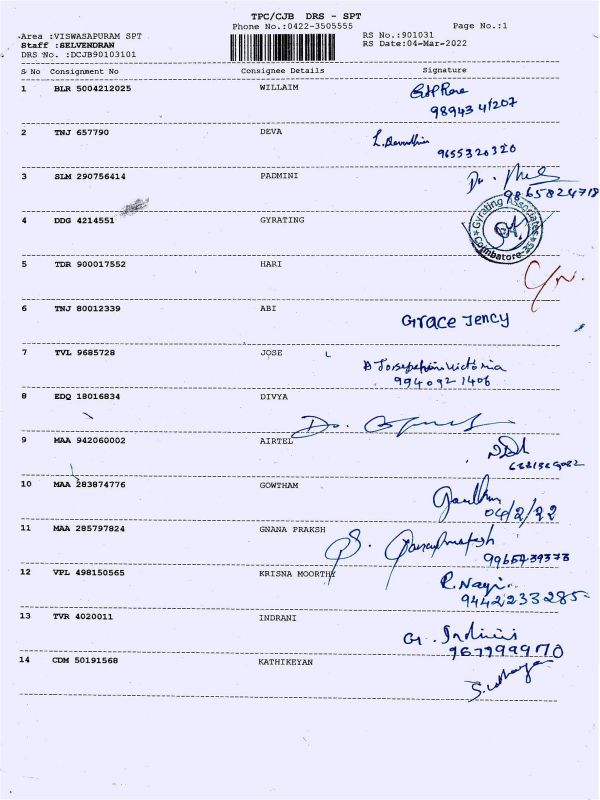 TPC/CJB DRS - SPT
Phone No.:0422-3505555
Page No.:1
Area :VISWASAPURAM SPT
RS No.:901031
Staff :SELVENDRAN
RS Date:04-Mar-2022
DRS No. :DCJB90103101
S No Consignment No Consignee Details Signature
1 BLR 5004212025 WILLAIM
98943 41207
2 TNJ 657790 DEVA
9655320320
3 SLM 290756414 PADMINI
9865824718
4 DDG 4214551 GYRATING
Gyrating Associates
Coimbatore-35
5 TDR 900017552 HARI
C/N.
6 TNJ 80012339 ABI
Grace Jency
7 TVL 9685728 JOSE
9940921406
8 EDQ 18016834 DIVYA
9 MAA 942060002 AIRTEL
10 MAA 283874776 GOWTHAM
04/2/22
11 MAA 285797824 GNANA PRAKSH
12 VPL 498150565 KRISNA MOORTHY
9442233285
13 TVR 4020011 INDRANI
14 CDM 50191568 KATHIKEYAN